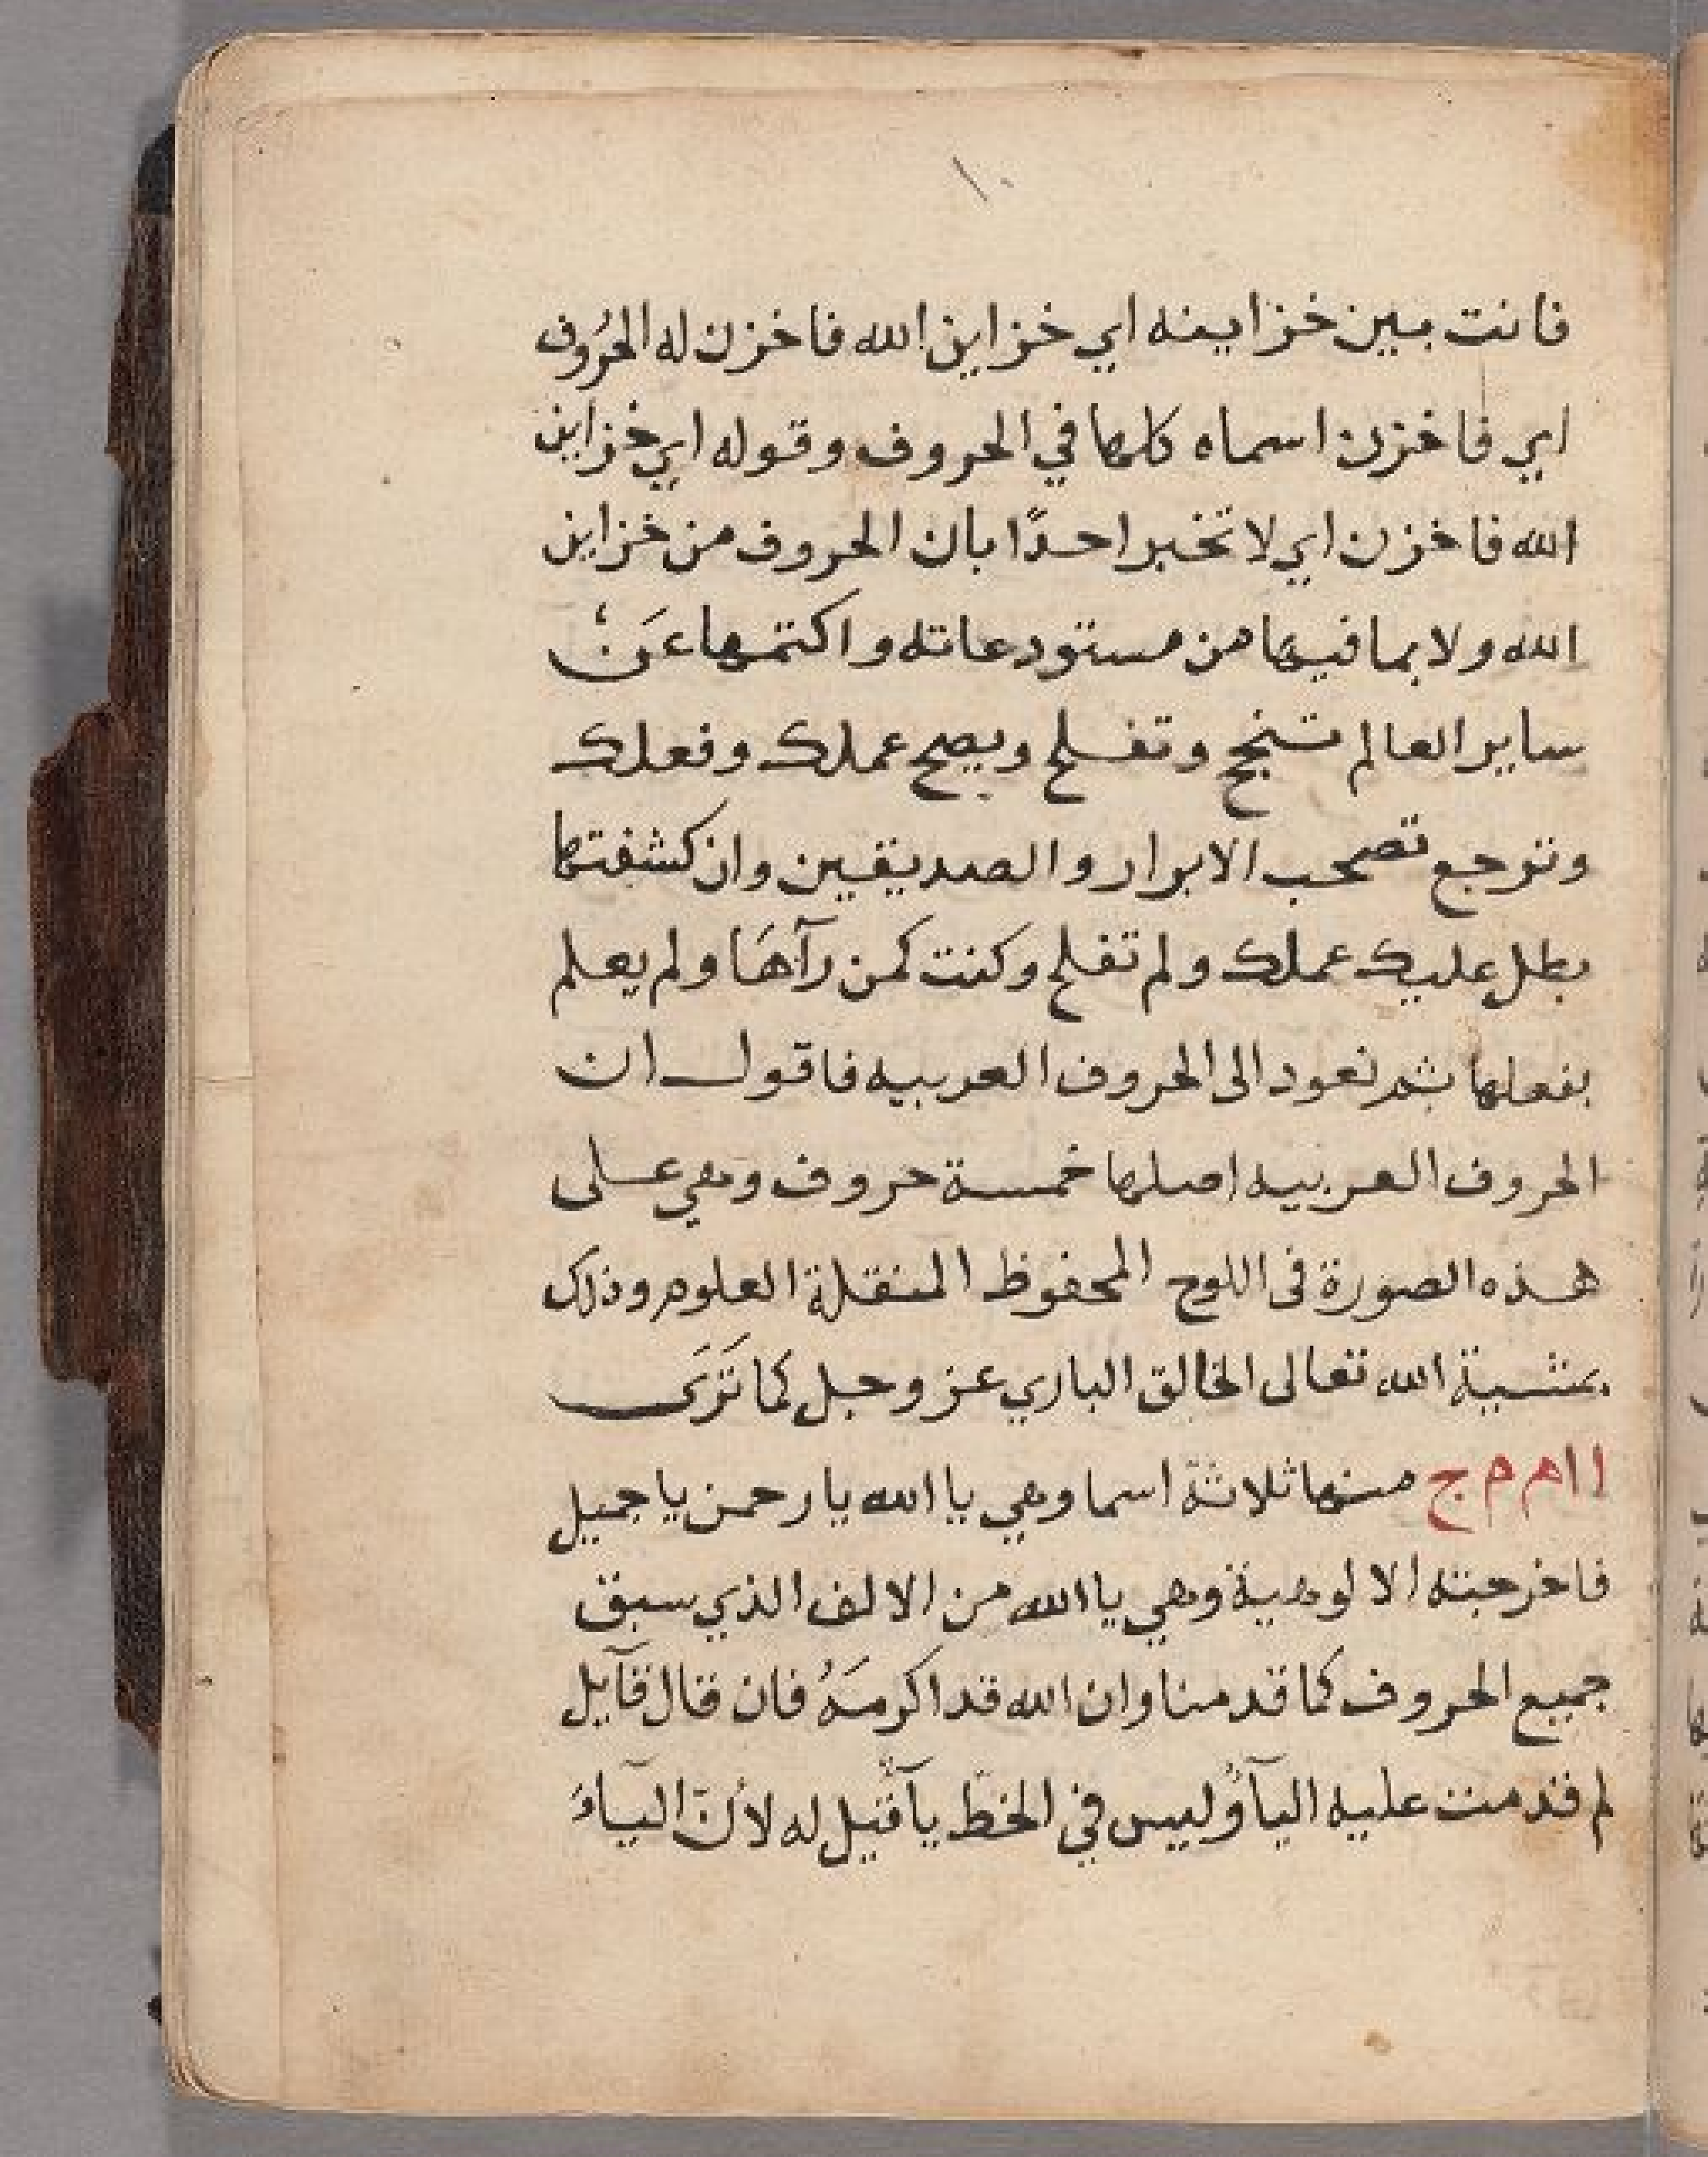 ١٠
فانت بين خزاينه اي خزاين الله فاخزن له الحُروف
اي فاخزن اسماه كلها في الحروف وقوله اي خزاين
الله فاخزن اي لا تخبر احدًا بان الحروف من خزاين
الله ولا بما فيها من مستودعاته واكتمها عَنْ
ساير العالم تنجح وتفلح ويصح عملك وفعلك
وترجع تصحب الابرار والصديقين وان كشفتها
بطل عليك عملك ولم تفلح وكنت كمن رآهَا ولم يعلم
بفعلها ثم نعود الى الحروف العربيه فاقول ان
الحروف العربيه اصلها خمسة حروف وهي على
هذه الصورة فى اللوح المحفوظ المنقلة العلوم وذلك
بمشية الله تعالى الخالق الباري عز وجل كما تَرَى
ا ا م م ج منها ثلاثة اسما وهي يا الله يا رحمن يا جميل
فاخرجته الالوهية وهي يا الله من الالف الذي سبق
جميع الحروف كما قدمنا وان الله قد اكرمَهُ فان قال قآيل
لم قدمت عليه اليآؤ وليس في الخطّ يآ قيل له لأنّ اليَاءَ